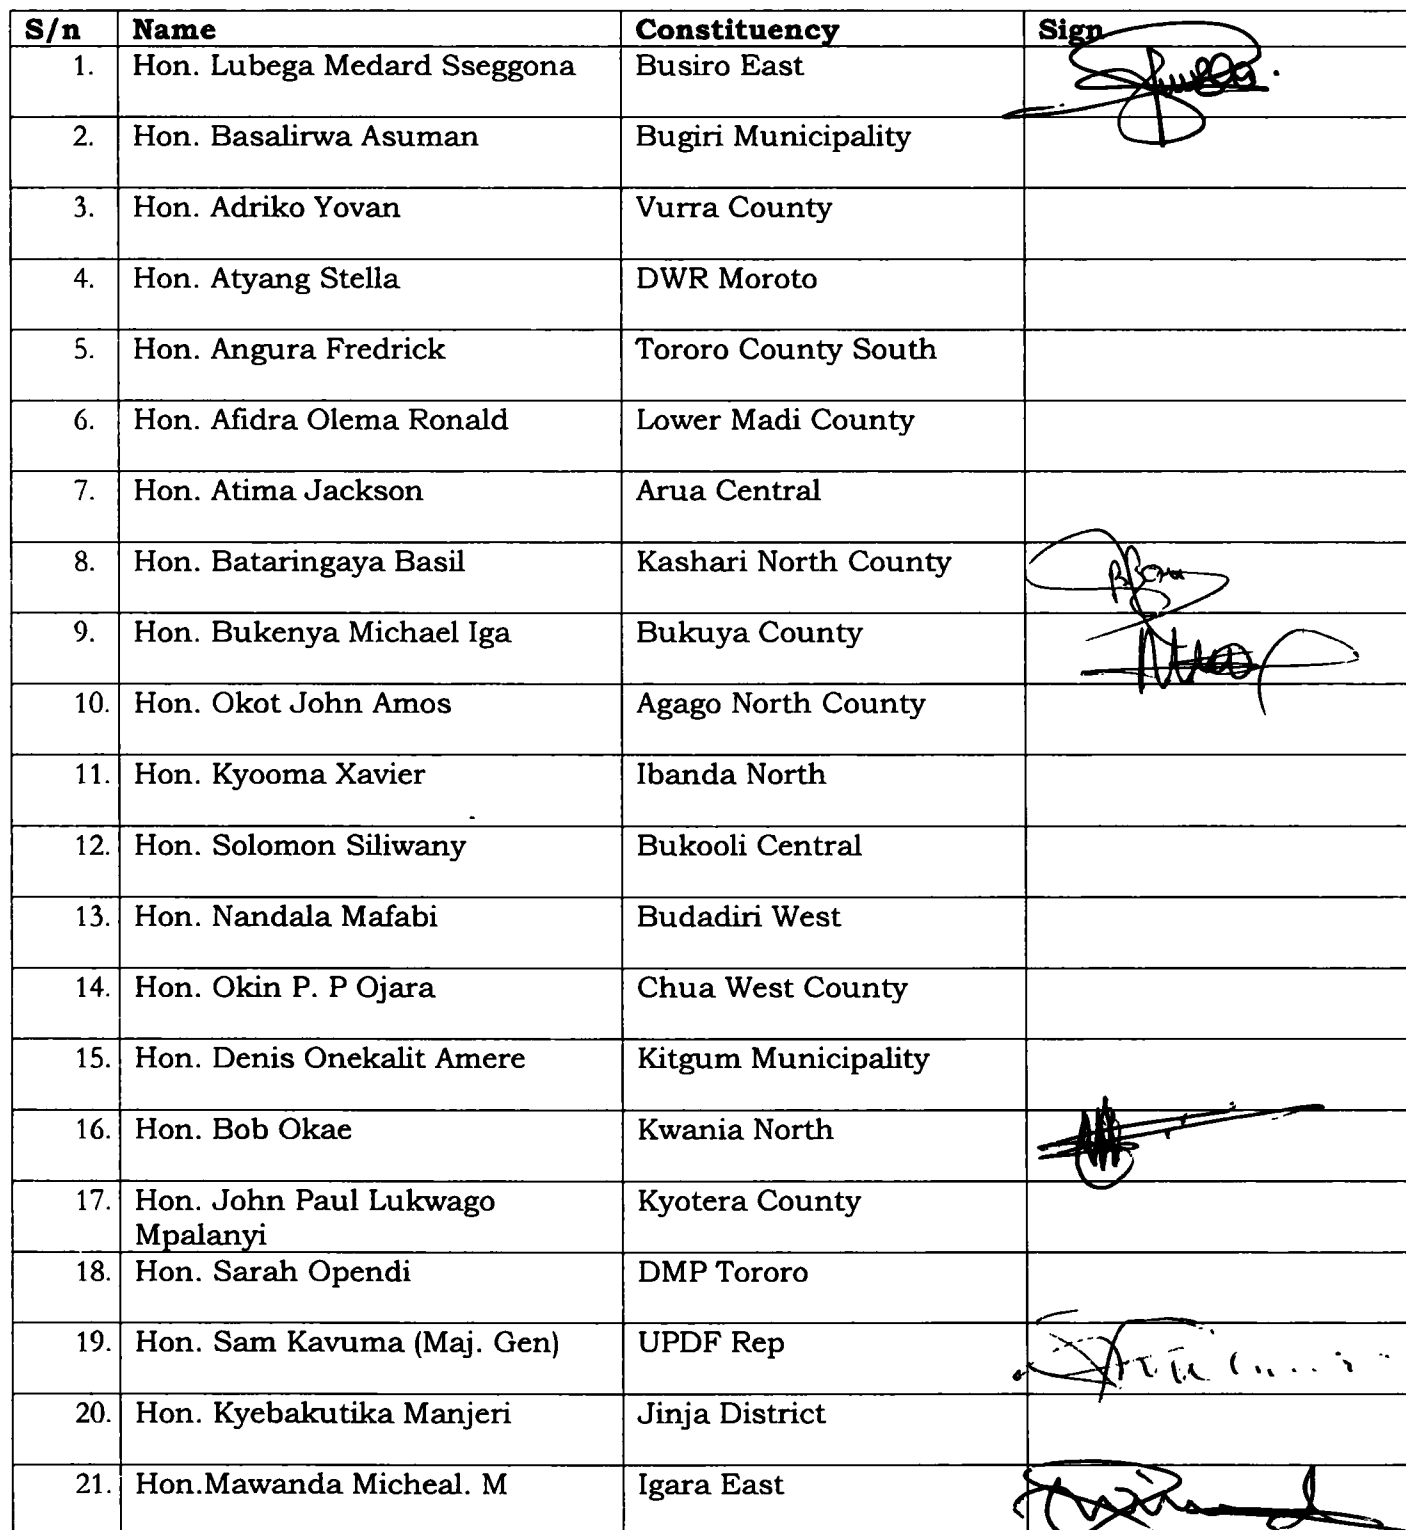 S/n Name Constituency Sign
1. Hon. Lubega Medard Sseggona Busiro East
2. Hon. Basalirwa Asuman Bugiri Municipality
3. Hon. Adriko Yovan Vurra County
4. Hon. Atyang Stella DWR Moroto
5. Hon. Angura Fredrick Tororo County South
6. Hon. Afidra Olema Ronald Lower Madi County
7. Hon. Atima Jackson Arua Central
8. Hon. Bataringaya Basil Kashari North County
9. Hon. Bukenya Michael Iga Bukuya County
10. Hon. Okot John Amos Agago North County
11. Hon. Kyooma Xavier Ibanda North
12. Hon. Solomon Siliwany Bukooli Central
13. Hon. Nandala Mafabi Budadiri West
14. Hon. Okin P. P Ojara Chua West County
15. Hon. Denis Onekalit Amere Kitgum Municipality
16. Hon. Bob Okae Kwania North
17. Hon. John Paul Lukwago Kyotera County
Mpalanyi
18. Hon. Sarah Opendi DMP Tororo
19. Hon. Sam Kavuma (Maj. Gen) UPDF Rep
20. Hon. Kyebakutika Manjeri Jinja District
21. Hon.Mawanda Micheal. M Igara East